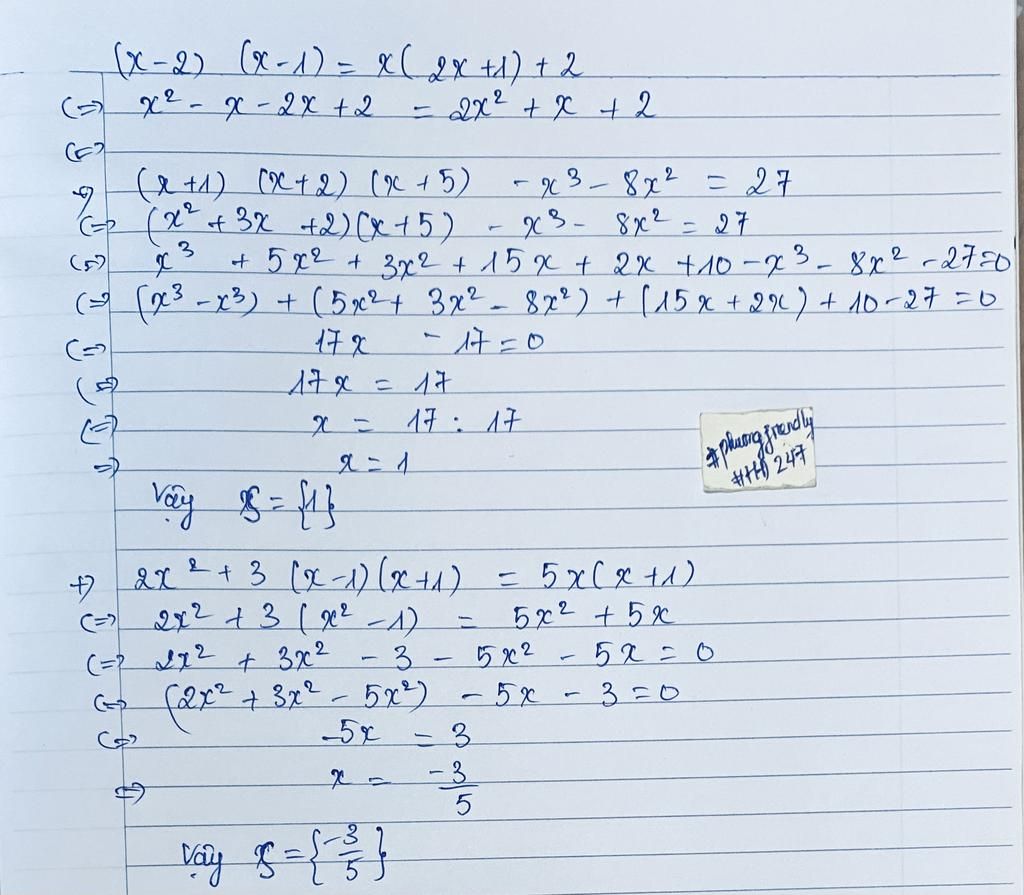 (x-2) (x-1) = x( 2x+1) + 2
(=) x² - x - 2x + 2 = 2x² + x + 2
(=)
(x+1) (x+2) (x+5) - x³ - 8x² = 27
(=) (x² + 3x +2)(x+5) - x³ - 8x² = 27
(=) x³ + 5x² + 3x² + 15x + 2x +10 - x³ - 8x² - 27=0
(=) (x³ - x³) + (5x² + 3x² - 8x²) + (15x + 2x) + 10 - 27 = 0
(=) 17x - 17 = 0
(=) 17x = 17
(=) x = 17 : 17
=) x = 1
Vậy S = {1}
#phuongfriendly
#HĐ 247
+) 2x² + 3 (x-1)(x+1) = 5x(x+1)
(=) 2x² + 3 (x² - 1) = 5x² + 5x
(=) 2x² + 3x² - 3 - 5x² - 5x = 0
(=) (2x² + 3x² - 5x²) - 5x - 3 = 0
(=) -5x = 3
=) x = -3/5
Vậy S = {-3/5}